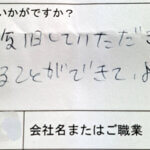 いかがですか?
復旧していただき
ることができて、よ
会社名またはご職業